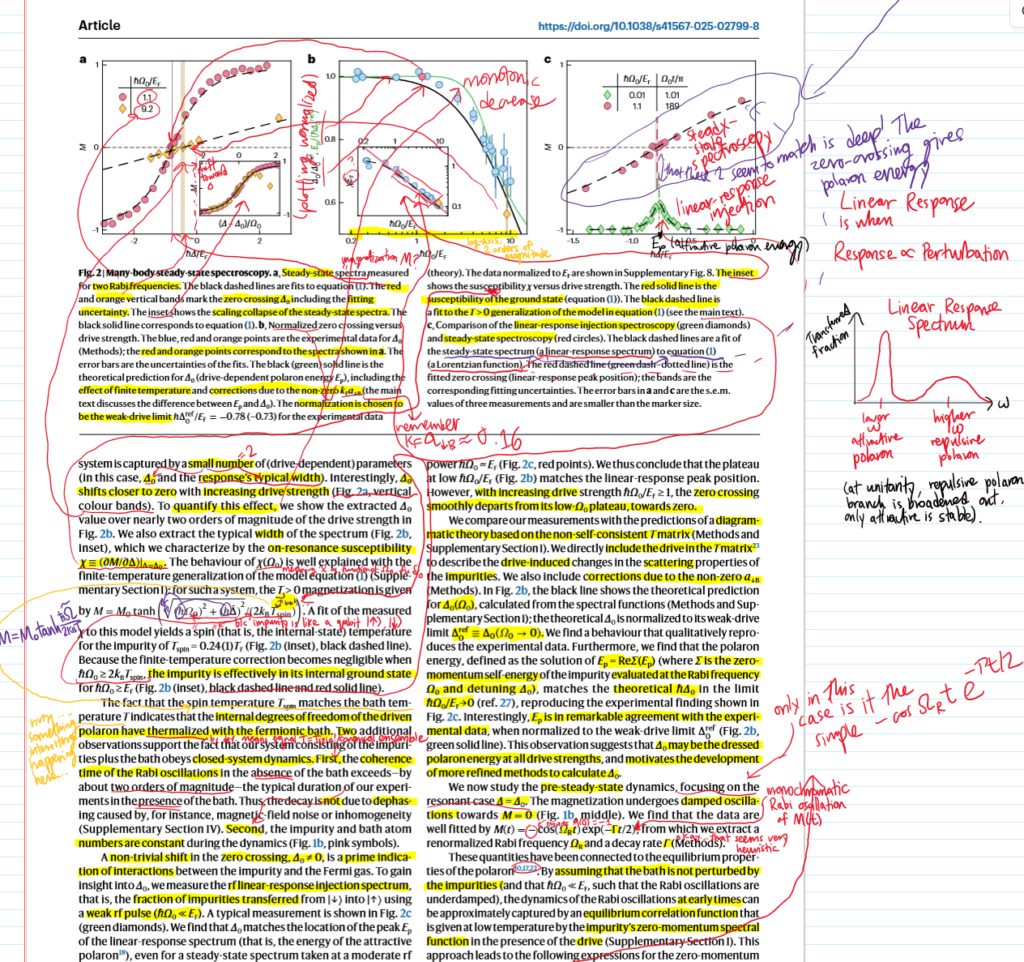 Article
https://doi.org/10.1038/s41567-025-02799-8
a
b
c
ħΩ₀/Eᵣ
1.1
9.2
M
ħΔ/Eᵣ
(Δ – Δ₀)/Ω₀
just
toward
0
(plotting normalized)
monotonic
decrease
1.0
0.8
0.6
0.2
1
10
ħΩ₀/Eᵣ
log-axis,
2 orders of
magnitude
ħΩ₀/Eᵣ Ω₀t/π
0.01 1.01
1.1 189
steady-
state
spectroscopy
linear-response
injection
-1.5
-1.0
-0.5
0
Eₚ (attractive polaron energy)
that these 2 seem to match is deep! The
zero-crossing gives
polaron energy
Linear Response
is when
Response ∝ Perturbation
Linear Response
Spectrum
Transferred
fraction
ω
lower
ω
attractive
polaron
higher
ω
repulsive
polaron
(at unitarity, repulsive polaron
branch is broadened out,
only attractive is stable).
magnetization M?
Fig. 2 | Many-body steady-state spectroscopy. a, Steady-state spectra measured
for two Rabi frequencies. The black dashed lines are fits to equation (1). The red
and orange vertical bands mark the zero crossing Δ₀ including the fitting
uncertainty. The inset shows the scaling collapse of the steady-state spectra. The
black solid line corresponds to equation (1). b, Normalized zero crossing versus
drive strength. The blue, red and orange points are the experimental data for Δ₀
(Methods); the red and orange points correspond to the spectra shown in a. The
error bars are the uncertainties of the fits. The black (green) solid line is the
theoretical prediction for Δ₀ (drive-dependent polaron energy Eₚ), including the
effect of finite temperature and corrections due to the non-zero (the main
text discusses the difference between Eₚ and Δ₀). The normalization is chosen to
be the weak-drive limit ħΔ₀ʳᵉᶠ/Eᵣ = −0.78 (−0.73) for the experimental data
(theory). The data normalized to Eᵣ are shown in Supplementary Fig. 8. The inset
shows the susceptibility χ versus drive strength. The red solid line is the
susceptibility of the ground state (equation (1)). The black dashed line is
a fit to the T > 0 generalization of the model in equation (1) (see the main text).
c, Comparison of the linear-response injection spectroscopy (green diamonds)
and steady-state spectroscopy (red circles). The black dashed lines are a fit of
the steady-state spectrum (a linear-response spectrum) to equation (1)
(a Lorentzian function). The red dashed line (green dash–dotted line) is the
fitted zero crossing (linear-response peak position); the bands are the
corresponding fitting uncertainties. The error bars in a and c are the s.e.m.
values of three measurements and are smaller than the marker size.
remember
≈ 0.16
= 2
system is captured by a small number of (drive-dependent) parameters
(in this case, Δ₀ and the response's typical width). Interestingly, Δ₀
shifts closer to zero with increasing drive strength (Fig. 2a, vertical
colour bands). To quantify this effect, we show the extracted Δ₀
value over nearly two orders of magnitude of the drive strength in
Fig. 2b. We also extract the typical width of the spectrum (Fig. 2b,
inset), which we characterize by the on-resonance susceptibility
χ ≡ (∂M/∂Δ)|Δ=Δ₀. The behaviour of χ(Ω₀) is well explained with the
finite-temperature generalization of the model equation (1) (Supple-
mentary Section I): for such a system, the T > 0 magnetization is given
by M = M₀ tanh (√(ħΩ₀)² + (ħΔ)²/(2k_B T_spin)). A fit of the measured
b/c impurity is like a qubit |↑⟩, |↓⟩
χ to this model yields a spin (that is, the internal-state) temperature
for the impurity of T_spin = 0.24(1)Tᵣ (Fig. 2b (inset), black dashed line).
Because the finite-temperature correction becomes negligible when
ħΩ₀ ≳ 2k_B T_spin, the impurity is effectively in its internal ground state
for ħΩ₀ ≳ Eᵣ (Fig. 2b (inset), black dashed line and red solid line).
The fact that the spin temperature T_spin matches the bath tem
perature T indicates that the internal degrees of freedom of the driven
polaron have thermalized with the fermionic bath. Two additional
observations support the fact that our system consisting of the impuri-
ties plus the bath obeys closed-system dynamics. First, the coherence
time of the Rabi oscillations in the absence of the bath exceeds—by
about two orders of magnitude—the typical duration of our experi-
ments in the presence of the bath. Thus, the decay is not due to dephas-
ing caused by, for instance, magnetic-field noise or inhomogeneity
(Supplementary Section IV). Second, the impurity and bath atom
numbers are constant during the dynamics (Fig. 1b, pink symbols).
A non-trivial shift in the zero crossing, Δ₀ ≠ 0, is a prime indica-
tion of interactions between the impurity and the Fermi gas. To gain
insight into Δ₀, we measure the rf linear-response injection spectrum,
that is, the fraction of impurities transferred from |↓⟩ into |↑⟩ using
a weak rf pulse (ħΩ₀ ≪ Eᵣ). A typical measurement is shown in Fig. 2c
(green diamonds). We find that Δ₀ matches the location of the peak Eₚ
of the linear-response spectrum (that is, the energy of the attractive
polaron¹⁸), even for a steady-state spectrum taken at a moderate rf
M = M₀ tanh
hm
something
interesting
happening
here...
power ħΩ₀ ≈ Eᵣ (Fig. 2c, red points). We thus conclude that the plateau
at low ħΩ₀/Eᵣ (Fig. 2b) matches the linear-response peak position.
However, with increasing drive strength ħΩ₀/Eᵣ ≳ 1, the zero crossing
smoothly departs from its low-Ω₀ plateau, towards zero.
We compare our measurements with the predictions of a diagram-
matic theory based on the non-self-consistent T matrix (Methods and
Supplementary Section I). We directly include the drive in the T matrix²³
to describe the drive-induced changes in the scattering properties of
the impurities. We also include corrections due to the non-zero
(Methods). In Fig. 2b, the black line shows the theoretical prediction
for Δ₀(Ω₀), calculated from the spectral functions (Methods and Sup-
plementary Section I); the theoretical Δ₀ is normalized to its weak-drive
limit Δ₀ʳᵉᶠ ≡ Δ₀(Ω₀ → 0). We find a behaviour that qualitatively repro-
duces the experimental data. Furthermore, we find that the polaron
energy, defined as the solution of Eₚ = ReΣ(Eₚ) (where Σ is the zero-
momentum self-energy of the impurity evaluated at the Rabi frequency
Ω₀ and detuning Δ₀), matches the theoretical ħΔ₀ in the limit
ħΩ₀/Eᵣ→0 (ref. 27), reproducing the experimental finding shown in
Fig. 2c. Interestingly, Eₚ is in remarkable agreement with the experi-
mental data, when normalized to the weak-drive limit Δ₀ʳᵉᶠ (Fig. 2b,
green solid line). This observation suggests that Δ₀ may be the dressed
polaron energy at all drive strengths, and motivates the development
of more refined methods to calculate Δ₀.
We now study the pre-steady-state dynamics, focusing on the
resonant case Δ = Δ₀. The magnetization undergoes damped oscilla-
tions towards M = 0 (Fig. 1b, middle). We find that the data are
well fitted by M(t) = −cos(Ω_R t) exp(−Γt/2), from which we extract a
renormalized Rabi frequency Ω_R and a decay rate Γ (Methods).
that seems very
heuristic
These quantities have been connected to the equilibrium proper-
ties of the polaron. By assuming that the bath is not perturbed by
the impurities (and that ħΩ₀ ≪ Eᵣ, such that the Rabi oscillations are
underdamped), the dynamics of the Rabi oscillations at early times can
be approximately captured by an equilibrium correlation function that
is given at low temperature by the impurity's zero-momentum spectral
function in the presence of the drive (Supplementary Section I). This
approach leads to the following expressions for the zero-momentum
only in this
case is it the
simple −cos Ω_R t e^(−Γt/2)
monochromatic
Rabi oscillation
of M(t)